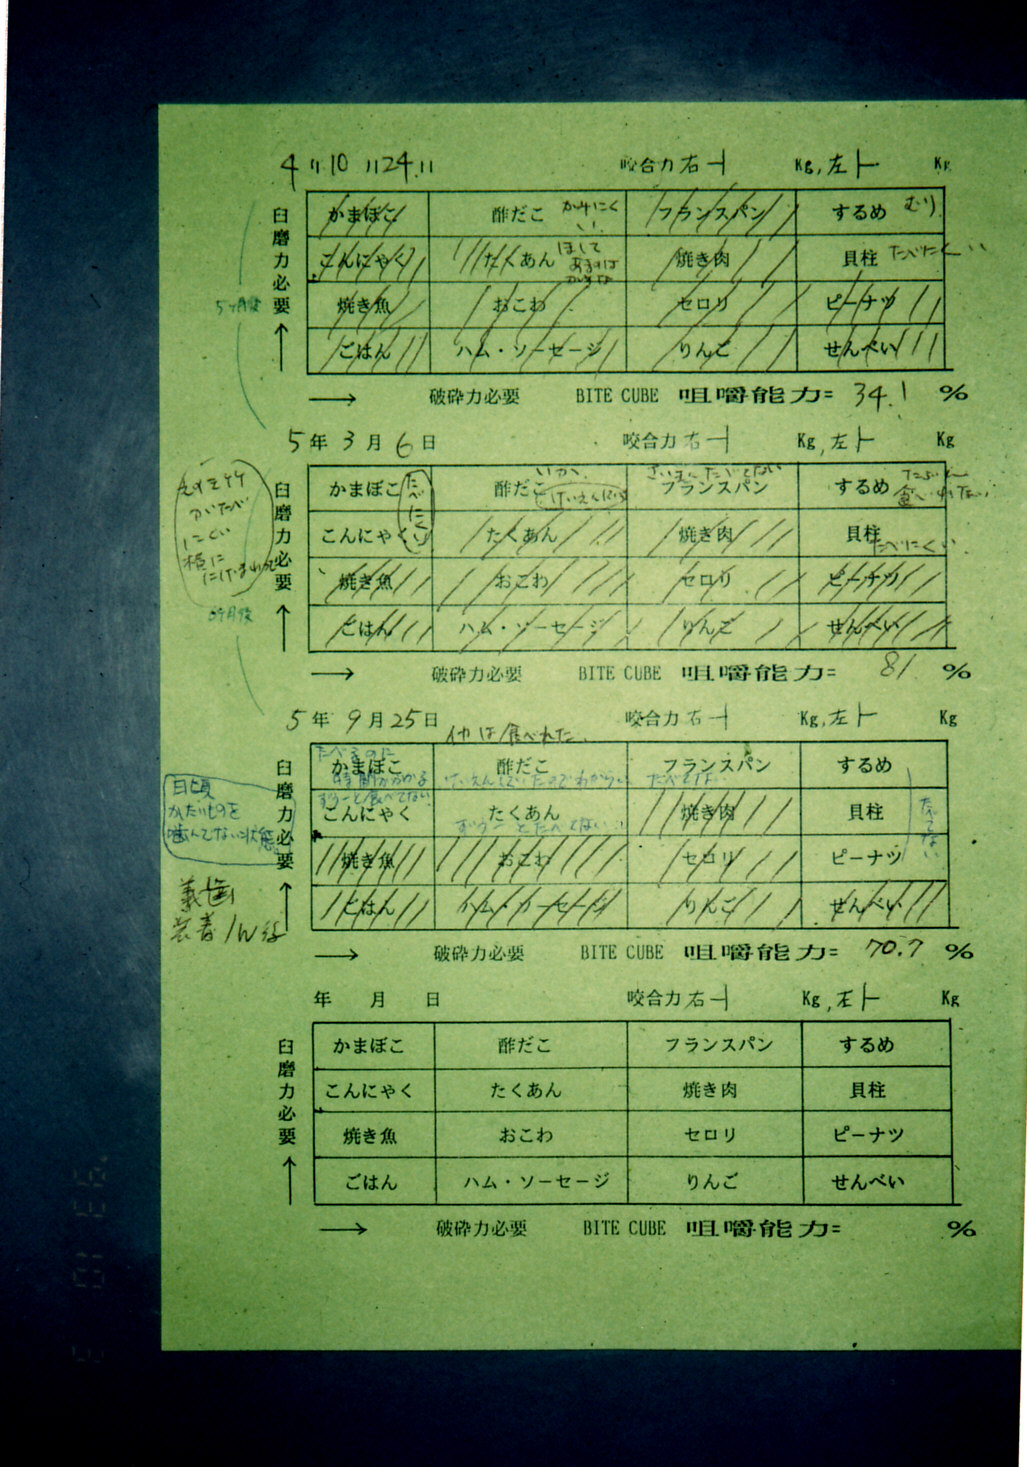 4 〃 10 〃 24 〃 咬合力 右 ┤ Kg, 左 ├ Kg
臼磨力必要
かまぼこ 酢だこ かみにくい フランスパン するめ むり
こんにゃく たくあん ほして あるのは 焼き肉 貝柱 たべにくい
焼き魚 おこわ セロリ ピーナツ
5ヶ月後
ごはん ハム・ソーセージ りんご せんべい
→ 破砕力必要 BITE CUBE 咀嚼能力= 34.1 %
5 年 3 月 6 日 咬合力 右 ┤ Kg, 左 ├ Kg
臼磨力必要
かまぼこ 酢だこ いか、 フランスパン さいきんたべてない するめ たぶん 食いれない
たべにくい
こんにゃく たくあん 焼き肉 貝柱 たべにくい
かたべ
にくい
横に
にげまわる
焼き魚 おこわ セロリ ピーナツ
ごはん ハム・ソーセージ りんご せんべい
→ 破砕力必要 BITE CUBE 咀嚼能力= 81 %
5 年 9 月 25 日 咬合力 右 ┤ Kg, 左 ├ Kg
イカは食べれた、
臼磨力必要
かまぼこ 酢だこ フランスパン するめ
たべるのに
時間がかかる けいえんしていたのでわからない たべてない
ずうーと食べてない
こんにゃく たくあん 焼き肉 貝柱
ずうーとたべてない
たべてない
日頃
かたいものを
噛んでない状態
焼き魚 おこわ セロリ ピーナツ
ごはん ハム・ソーセージ りんご せんべい
義歯
装着1W後
→ 破砕力必要 BITE CUBE 咀嚼能力= 70.7 %
年 月 日 咬合力 右 ┤ Kg, 左 ├ Kg
臼磨力必要
かまぼこ 酢だこ フランスパン するめ
こんにゃく たくあん 焼き肉 貝柱
焼き魚 おこわ セロリ ピーナツ
ごはん ハム・ソーセージ りんご せんべい
→ 破砕力必要 BITE CUBE 咀嚼能力= %